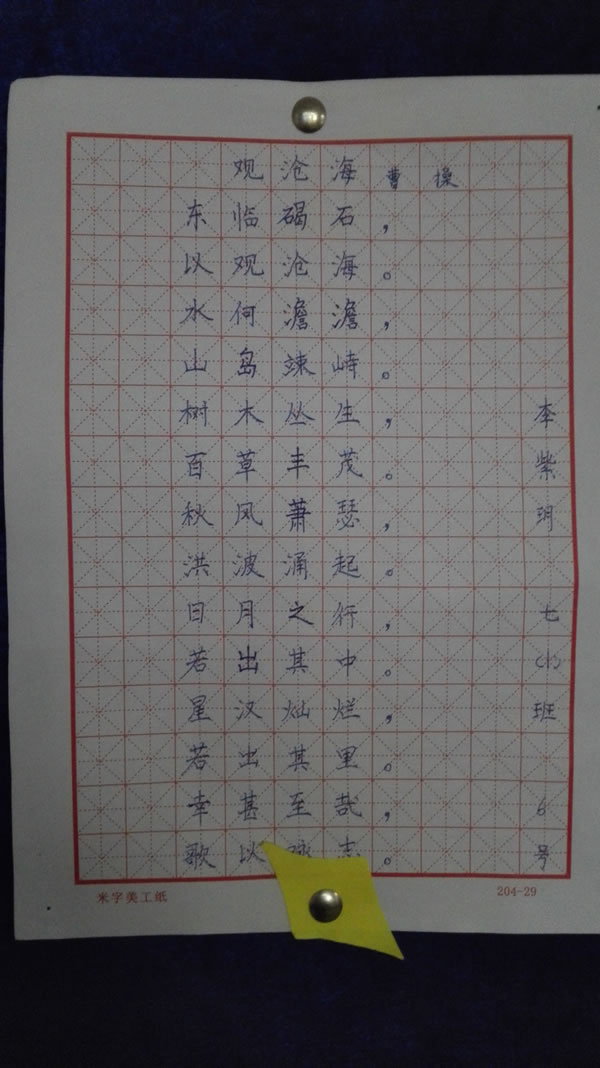 观沧海 曹操
东临碣石，
以观沧海。
水何澹澹，
山岛竦峙。
树木丛生，
百草丰茂。
秋风萧瑟，
洪波涌起。
日月之行，
若出其中。
星汉灿烂，
若出其里。
幸甚至哉，
歌以咏志。
李紫玥
七(1)班
6号
米字美工纸
204-29